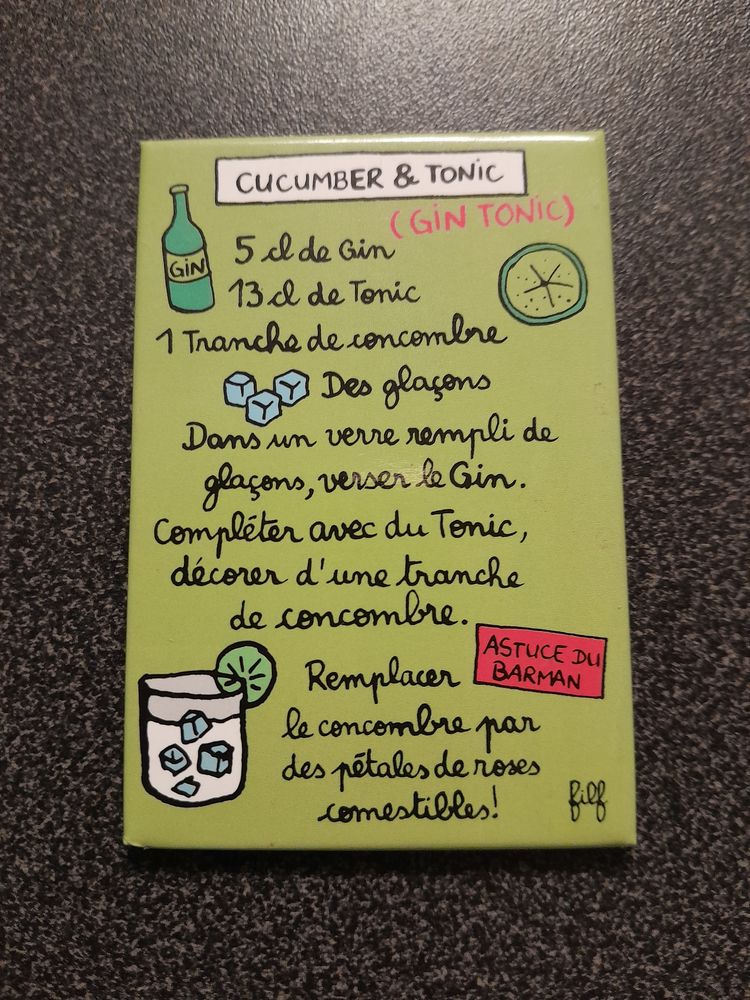 CUCUMBER & TONIC
(GIN TONIC)
GIN
5 cl de Gin
13 cl de Tonic
1 Tranche de concombre
Des glaçons
Dans un verre rempli de
glaçons, verser le Gin.
Compléter avec du Tonic,
décorer d'une tranche
de concombre.
ASTUCE DU
BARMAN
Remplacer
le concombre par
des pétales de roses
comestibles!
filf